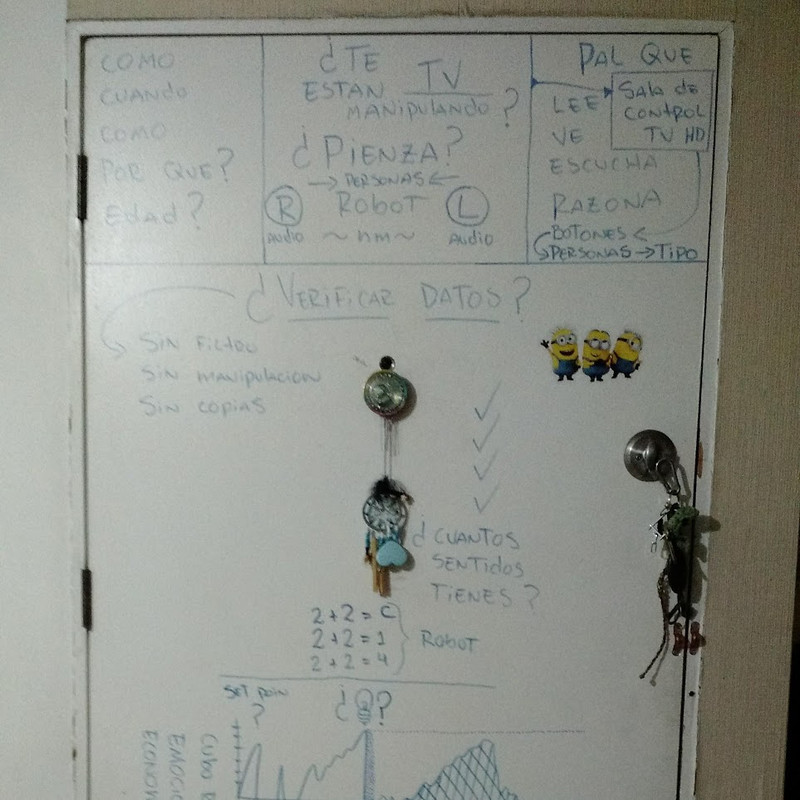 COMO
CUANDO
COMO
POR QUE?
EDAD?
¿TE
ESTAN TV
MANIPULANDO?
¿PIENZA?
→ PERSONAS ←
R ROBOT L
AUDIO ~ nm ~ AUDIO
PAL QUE
LEE
VE
ESCUCHA
RAZONA
BOTONES
PERSONAS → TIPO
Sala de
CONTROL
TV HD
¿VERIFICAR DATOS?
SIN FILTRO
SIN MANIPULACION
SIN COPIAS
¿CUANTOS
SENTIDOS
TIENES?
2+2=C
2+2=1
2+2=4
ROBOT
SET POIN
?
¿ ?
CUBO
EMOCIO
ECONOM